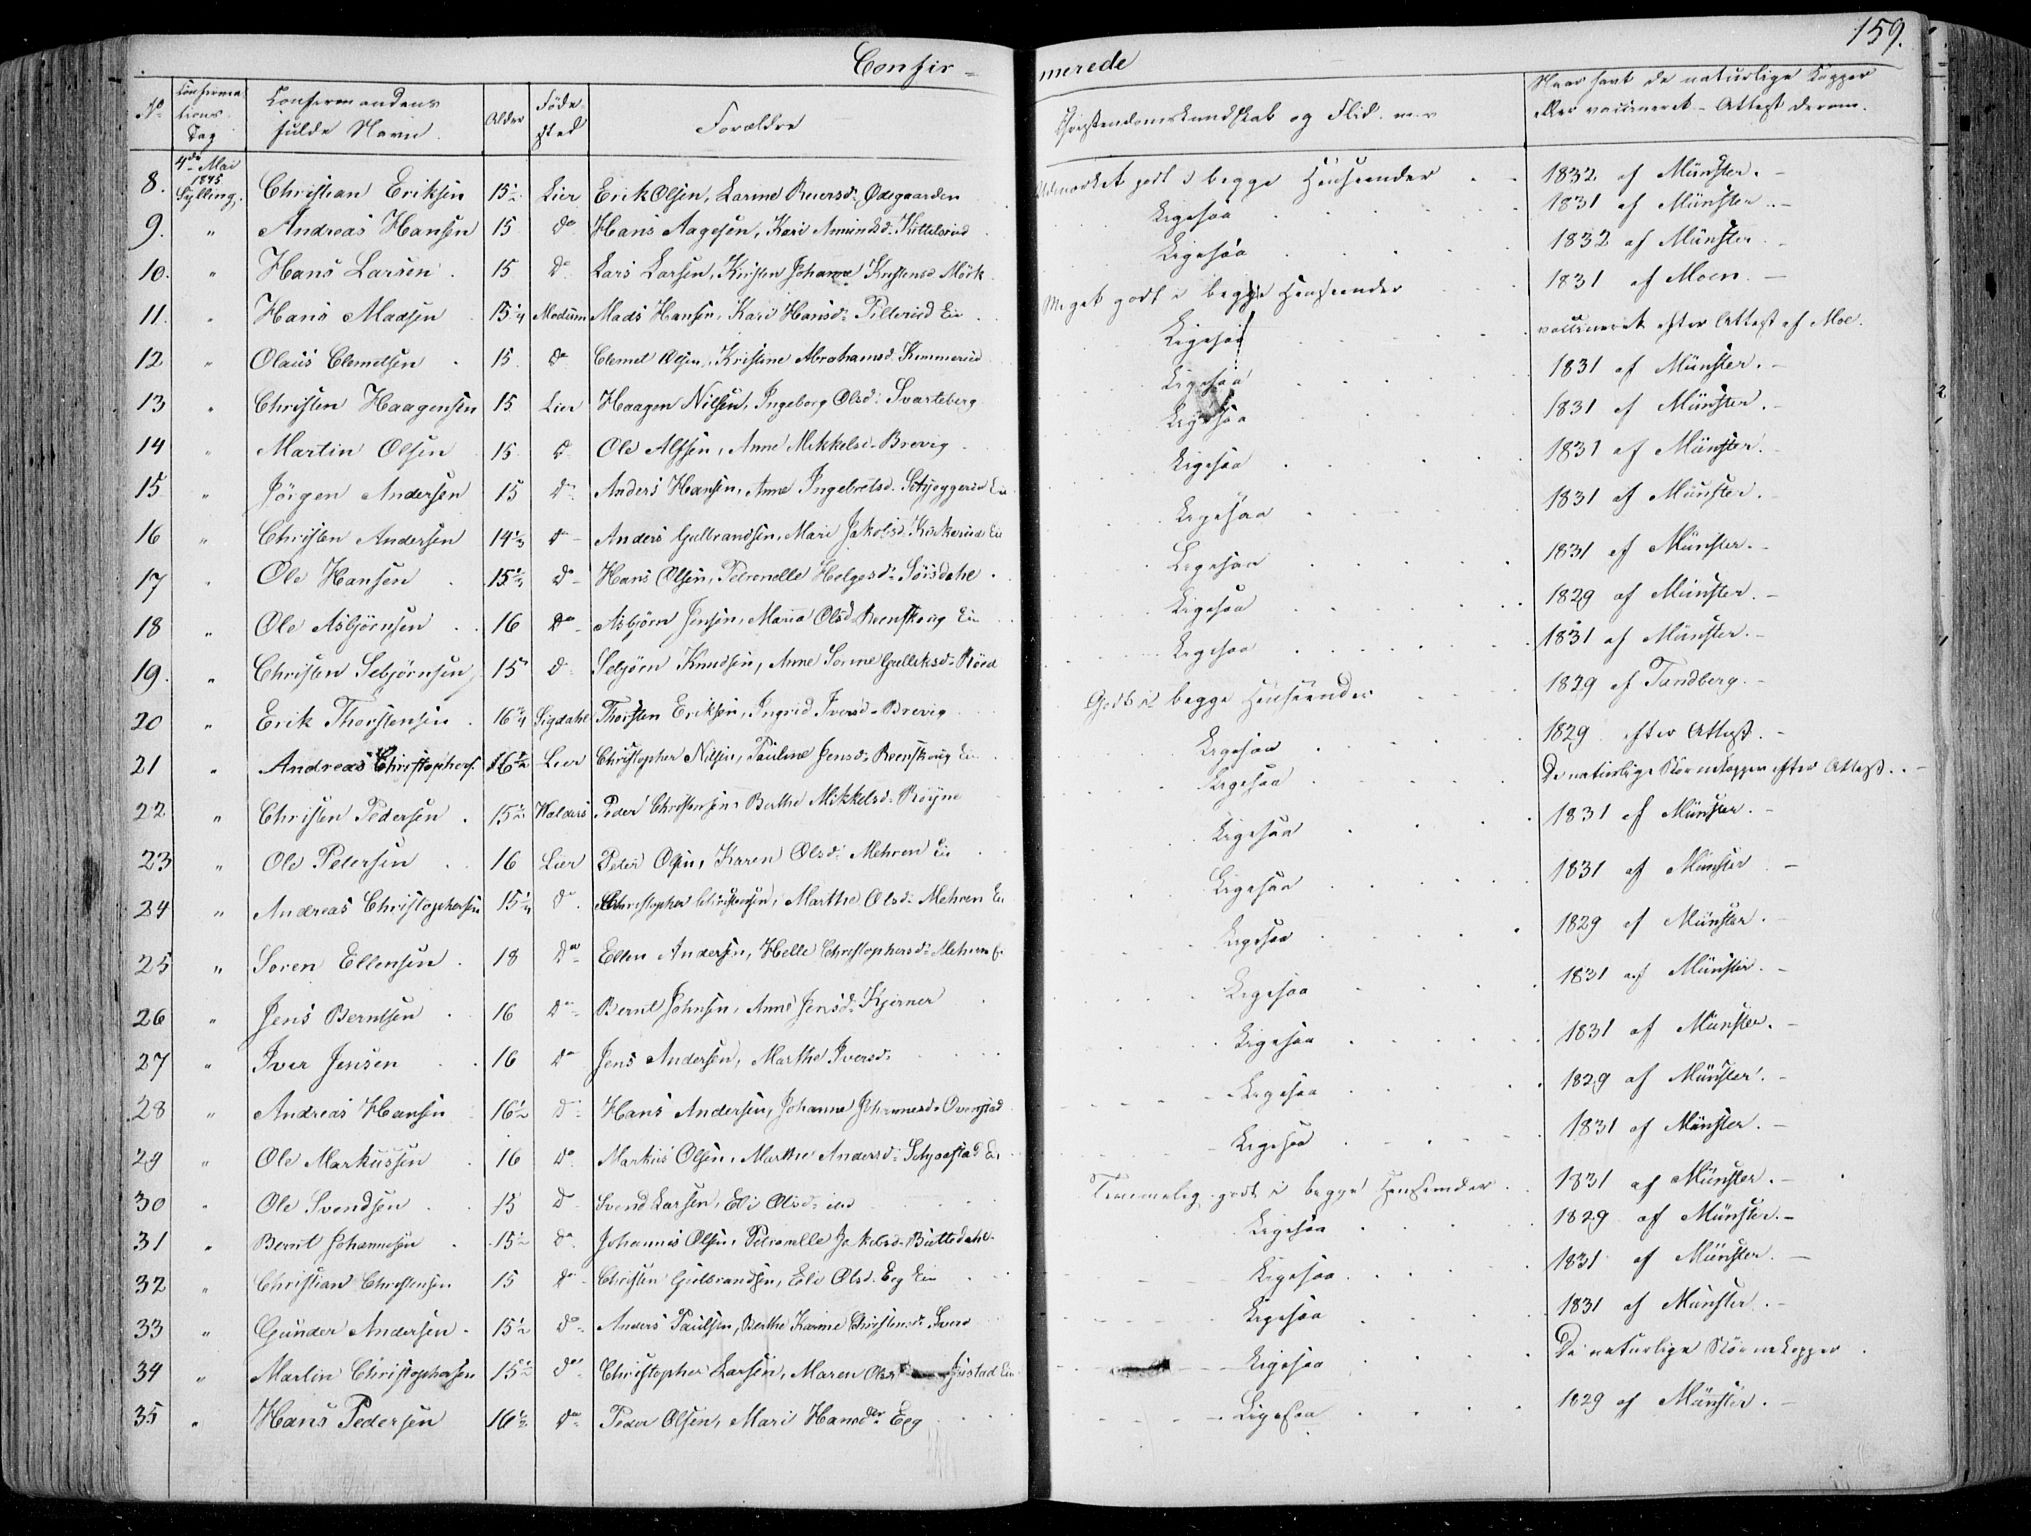 159.
Confir- merede
No Confirma- tions Dag Confirmandens fulde Navn. Alder Føde sted Forældre Christendomskundskab og Flid. Naar havt de naturlige Kopper
eller vaccineret - Attest derom.
4de Mai 1845 Sylling.
8. Christian Eriksen 15½ Lier Erik Olsen, Reiersd: Ødegaarden Udmærket godt i begge Henseender 1832 af Münster.
9. " Andreas Hansen 15 do Hans Aagesen, Kari Amundsd. Kittelsrud Ligesaa 1831 af Münster.
10. " Hans Larsen 15 do Lars Larsen, Kirsten Johanne Mörk Ligesaa 1832 af Münster.
11. " Hans Madsen 15¼ Modum Mads Hansen, Kari Hansd: Eie Meget godt i begge Henseender 1831 af Moen.
12 " Olaus Clemetsen 15 do Clemet Olsen, Kristine Abrahamsd. Ligesaa vaccineret efter Attest af Moe.
13 " Christen Haagensen 15 Lier Haagen Nilsen, Ingeborg Olsd: Svarteberg Ligesaa 1831 af Münster.
14 " Martin Olsen 15 do Ole Alfsen, Anne Mikkelsd. Brevig Ligesaa 1831 af Münster.
15 " Jörgen Andersen 15 do Anders Hansen, Anne Ingebretsd. Eie Ligesaa 1831 af Münster.
16 " Christen Andersen 14⅔ do Anders Gulbrandsen, Mari Jakobsd. Kirkerud Eie Ligesaa 1831 af Münster.
17 " Ole Hansen 15½ do Hans Olsen, Petronelle Helgesd: Sörsdahl Ligesaa 1831 af Münster.
18 " Ole Asbjørnsen 16 do Asbjörn Jensen, Maria Olsd. Reenskoug Eie Ligesaa 1829 af Münster.
19. " Christen Sebjørnsen 15 do Sebjörn Knudsen, Anne Gulliksd: Röed Ligesaa 1831 af Münster.
20 " Erik Thorstensen 16¾ Sigdahl Thorsten Eriksen, Ingrid Iversd. Brevig Godt i begge Henseender 1829 af Tandberg.
21 " Andreas Christophers. 16½ Lier Christopher Nilsen, Pauline Jensd: Reenskoug Eie Ligesaa 1829 efter Attest.
22 " Christen Pedersen 15½ Walders Peder Christensen, Berthe Mikkelsd. Röyne Ligesaa De naturlige Börnekopper efter Attest.
23 " Ole Petersen 16 Lier Peter Olsen, Karen Olsd: Mehren Eie Ligesaa 1831 af Münster.
24 " Andreas Christophersen 15¼ do Christopher Christensen, Marthe Olsd: Mehren Eie Ligesaa 1831 af Münster
25 " Soren Ellensen 18 do Ellen Andersen, Helle Christophersd: Mehren E. Ligesaa 1829 af Münster.
26 " Jens Berntsen 16 do Bernt Johnsen, Anne Jensd: Kjörner Ligesaa 1831 af Münster.
27 " Iver Jensen 16 do Jens Andersen, Marthe Iversd: Ligesaa 1831 af Münster.
28 " Andreas Hansen 16½ do Hans Andersen, Johanne Johannesd: Overstad Ligesaa 1829 af Münster.
29 " Ole Markussen 16 do Markus Olsen, Marthe Andersd: Eie Ligesaa 1831 af Münster.
30 " Ole Svendsen 15 do Svend Larsen, Eli Olsd: Temmelig godt i begge Henseender 1831 af Münster.
31 " Bernt Johannesen 15½ do Johannes Olsen, Petronelle Jakobsd: Buttedahl Ligesaa 1829 af Münster.
32 " Christian Christensen 15 do Christen Gulbrandsen, Eli Olsd. Eeg Eie Ligesaa 1831 af Münster.
33 " Gunder Andersen 15½ do Anders Paulsen, Berthe Karine Christensd: Svend Ligesaa 1831 af Münster.
34 " Martin Christophersen 15½ do Christopher Larsen, Maren Eie Ligesaa De naturlige Börnekopper.
35 " Hans Pedersen 16½ do Peder Olsen, Mari Hansdr Eeg Ligesaa 1829 af Münster.